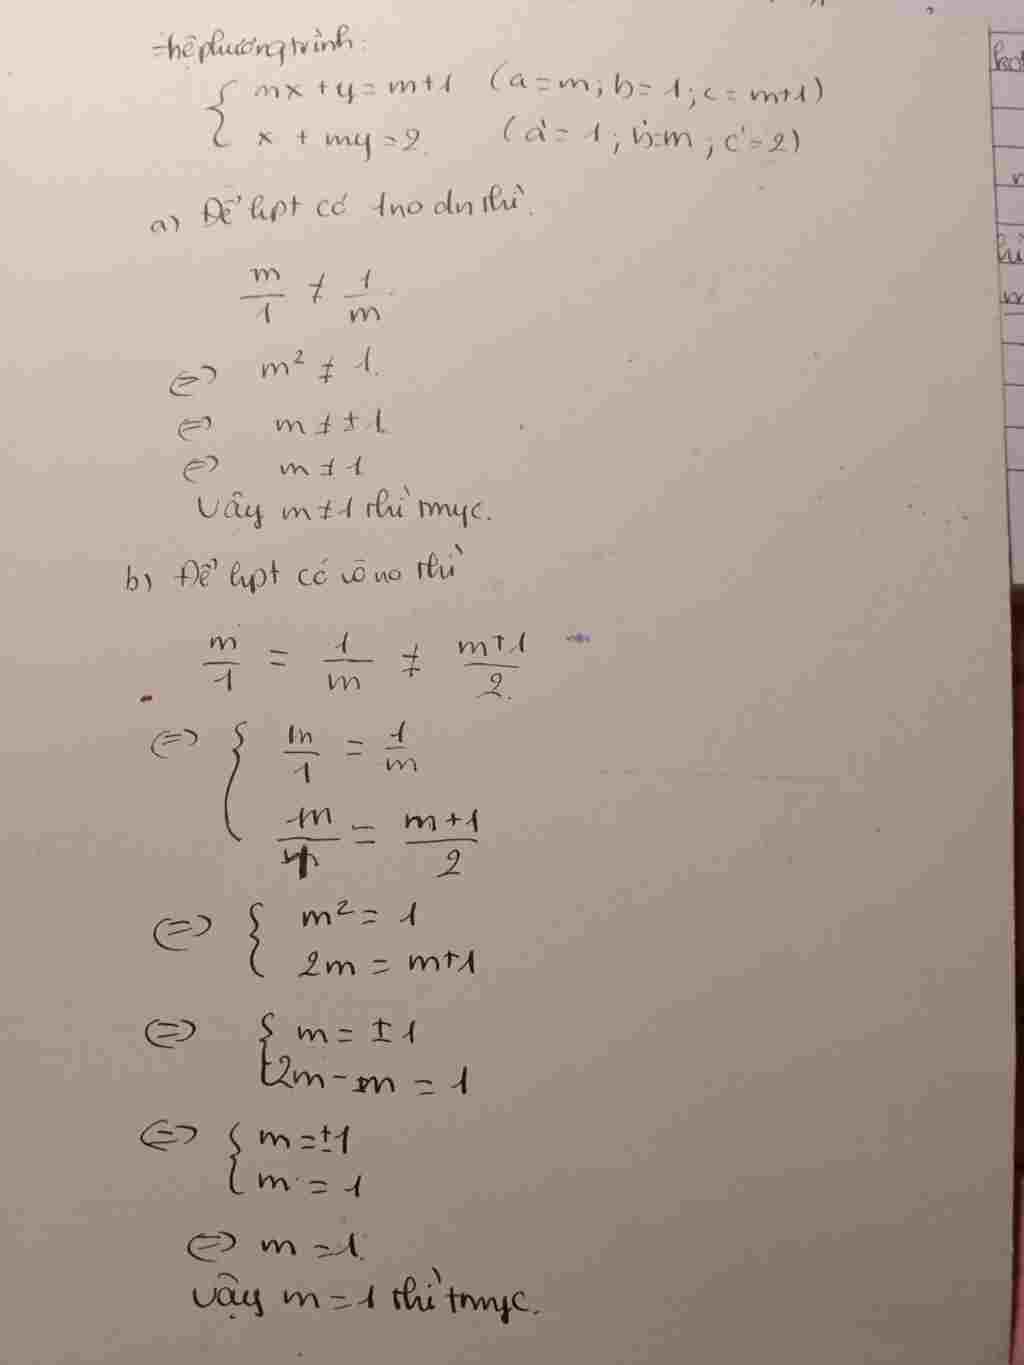 =hệ phương trình:
{ mx + y = m+1 (a = m; b = 1; c = m+1)
x + my = 2. (a' = 1; b' = m; c' = 2)
a) Để hpt có 1no dn thì.
m/1 ≠ 1/m
⇔ m² ≠ 1.
⇔ m ≠ ±1
⇔ m ≠ 1
Vậy m ≠ 1 thì tmyc.
b) Để hpt có vô no thì
m/1 = 1/m ≠ m+1/2.
⇔ { m/1 = 1/m
m/1 = m+1/2
⇔ { m² = 1
2m = m+1
⇔ { m = ±1
2m - m = 1
⇔ { m = ±1
m = 1
⇔ m = 1.
Vậy m = 1 thì tmyc.